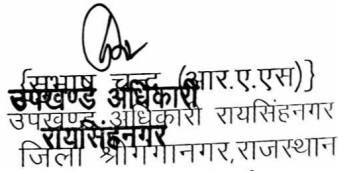 {सुभाष चन्द्र (आर.ए.एस)}
उपखण्ड अधिकारी
उपखण्ड अधिकारी रायसिंहनगर
रायसिंहनगर
जिला श्रीगंगानगर,राजस्थान